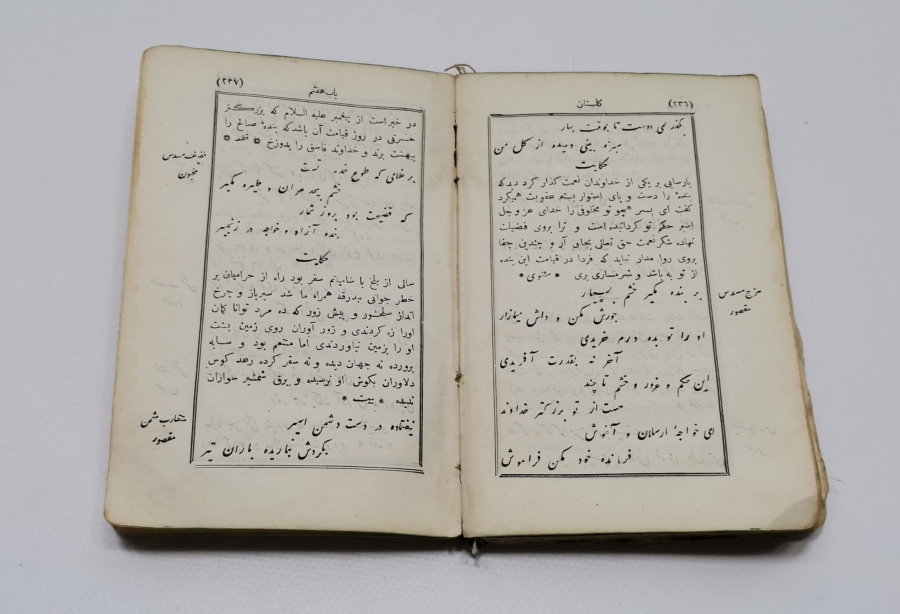 (٢٣٦)
کلستان
بگذر ای دوست تا بوقت بهار
سبزه بینی دمیده از گل من
حکایت
پارسایی بر یکی از خداوندان نعمت کذار کرد دید که
بندهٔ را دست و پای استوار بسته عقوبت همیکرد
کفت ای پسر همچو تو مخلوقی را خدای عز و جل
اسیر حکم تو کردانیده است و ترا بروی فضیلت
نهاده شکر نعمت حق تعالی بجای آر و چندین جفا
بروی روا مدار نباید که فردا در قیامت این بنده
از تو به باشد و شرمساری بری * مثنوی *
هزج مسدس
مقصور
بر بنده مگیر خشم بسیار
جورش مکن و دلش میازار
او را تو بده درم خریدی
آخر نه بقدرت آفریدی
این حکم و غرور و خشم تا چند
هست از تو بزرگتر خداوند
ای خواجهٔ ارسلان و آغوش
فرمانده خود مکن فراموش
(٢٣٧)
باب هفتم
در خبر است از پیغمبر علیه السلام که بزرکتر
حسرتی در روز قیامت آن باشد که بندهٔ صالح را
ببهشت برند و خداوند فاسق را بدوزخ * قطعه *
خفیف مسدس
مخبون
بر غلامی که طوع خدمت تست
خشم بیحد مران و طیره مگیر
که فضیحت بود بروز شمار
بنده آزاد و خواجه در زنجیر
حکایت
سالی از بلخ با شامیانم سفر بود راه از حرامیان پر
خطر جوانی ببدرقه همراه ما شد سپرباز و چرخ
انداز سلحشور و بیش زور که ده مرد توانا کمان
اورا زه کردندی و زور آوران روی زمین پشت
او را بزمین نیاوردندی اما متنعم بود و سایه
پرورده نه جهان دیده و نه سفر کرده رعد کوس
دلاوران بکوش او نرسیده و برق شمشیر سواران
ندیده * بیت *
متقارب مثمن
مقصور
نیفتاده در دست دشمن اسیر
بگردش نباریده باران تیر